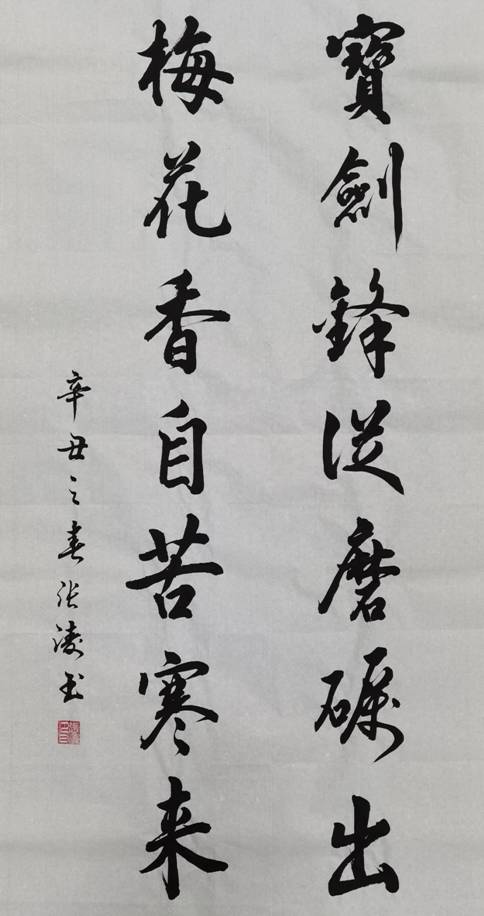 寶劍鋒從磨礪出
梅花香自苦寒来
辛丑之春张凌玉